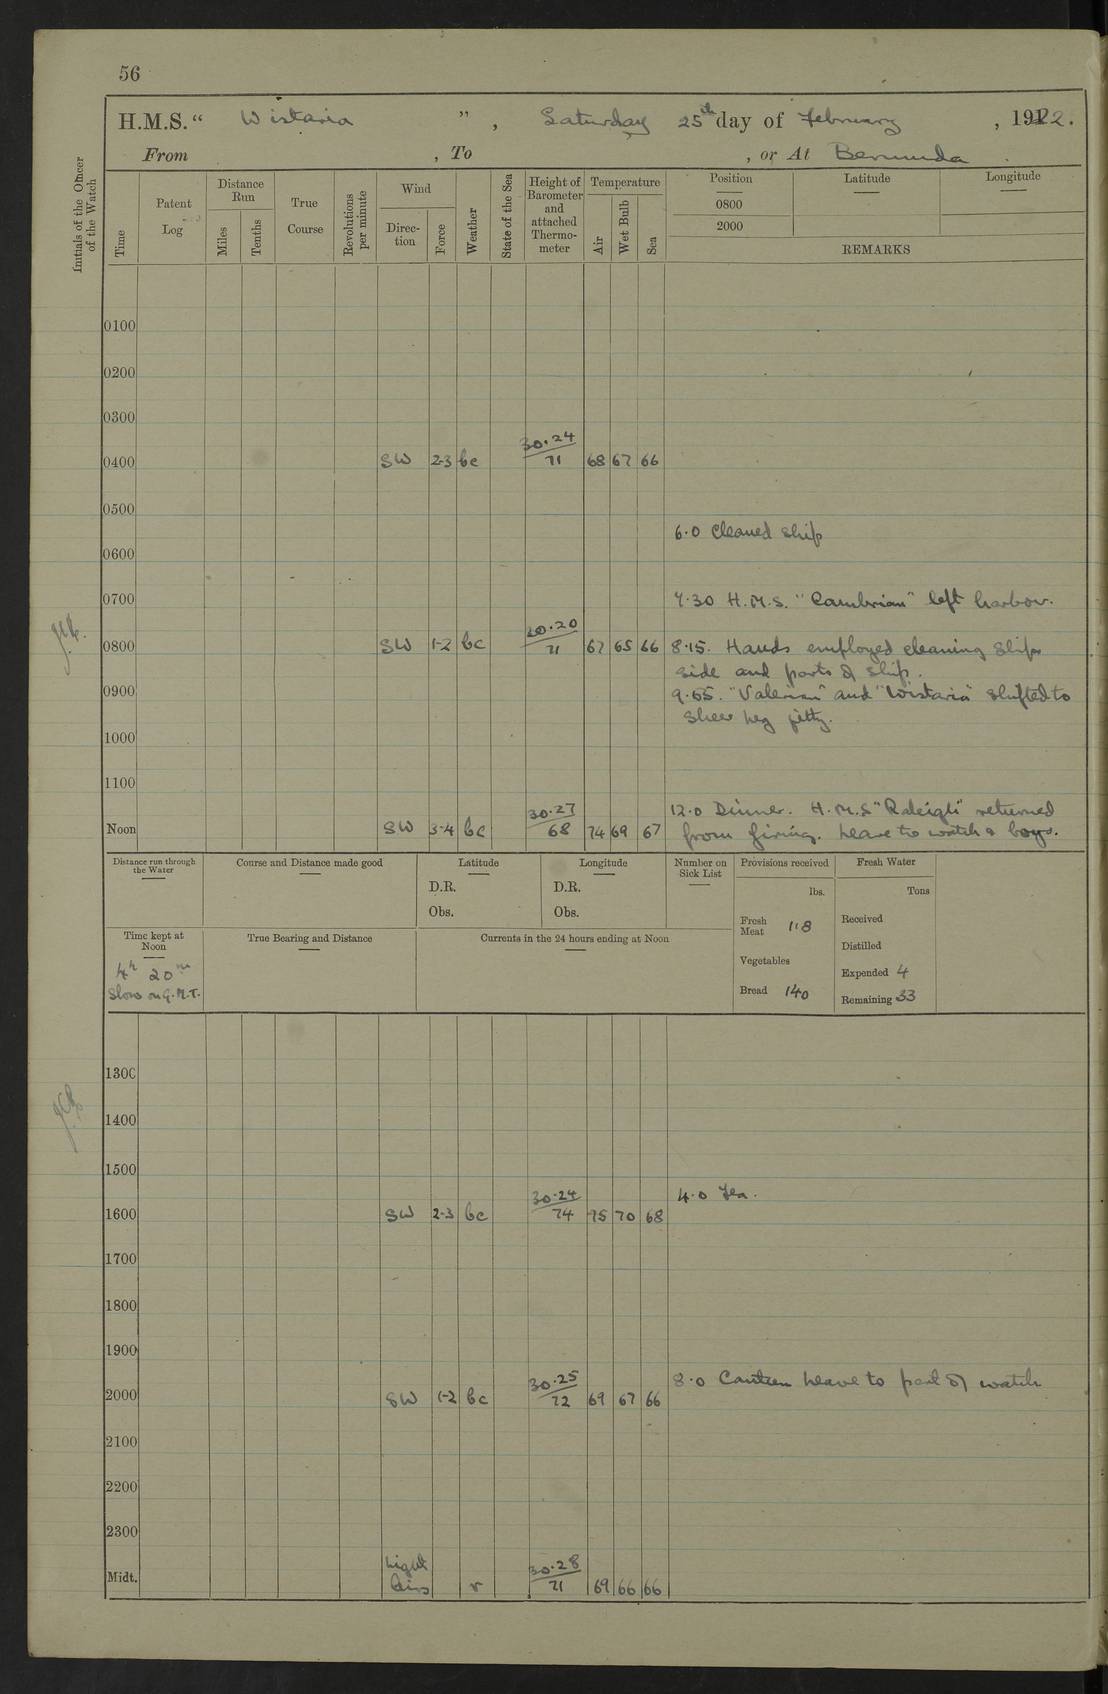 56
H.M.S. “ Wistaria ” , Saturday 25th day of February , 1922.
From , To , or At Bermuda .
Initials of the Officer of the Watch
Time
Patent Log
Distance Run
Miles
Tenths
True Course
Revolutions per minute
Wind
Direc- tion
Force
Weather
State of the Sea
Height of Barometer and attached Thermo- meter
Temperature
Air
Wet Bulb
Sea
Position
Latitude
Longitude
0800
2000
REMARKS
0100
0200
0300
0400 SW 2-3 bc 30.24 71 68 67 66
0500
6.0 Cleaned ship
0600
0700 7.30 H.M.S. "Cambrian" left harbour.
0800 SW 1-2 bc 30.20 71 67 65 66 8.15. Hands employed cleaning ships
side and parts of ship.
0900 9.55. "Valerian" and "Wistaria" shifted to
sheer leg jetty.
1000
1100
12.0 Dinner. H.M.S "Raleigh" returned
Noon SW 3-4 bc 30.27 68 74 69 67 from firing. Leave to watch & boys.
Distance run through the Water
Course and Distance made good
Latitude
D.R.
Obs.
Longitude
D.R.
Obs.
Number on Sick List
Provisions received
lbs.
Fresh Meat 118
Vegetables
Bread 140
Fresh Water
Tons
Received
Distilled
Expended 4
Remaining 33
Time kept at Noon
4h 20m
Slow on G.M.T.
True Bearing and Distance
Currents in the 24 hours ending at Noon
1300
1400
1500
4.0 Tea.
1600 SW 2-3 bc 30.24 74 75 70 68
1700
1800
1900
8.0 Canteen leave to part of watch
2000 SW 1-2 bc 30.25 72 69 67 66
2100
2200
2300
Midt. Light Airs r 30.28 71 69 66 66